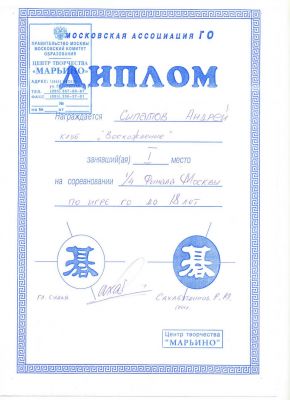 МОСКОВСКАЯ АССОЦИАЦИЯ ГО
ПРАВИТЕЛЬСТВО МОСКВЫ
МОСКОВСКИЙ КОМИТЕТ
ОБРАЗОВАНИЯ
ЦЕНТР ТВОРЧЕСТВА
"МАРЬИНО"
ДИПЛОМ
Награждается Андрей
клуб "Восхождение"
занявший(ая) I место
на соревновании 1/4 Финала Москвы
по игре го до 18 лет
碁 碁
гл. судья
Центр творчества
"МАРЬИНО"